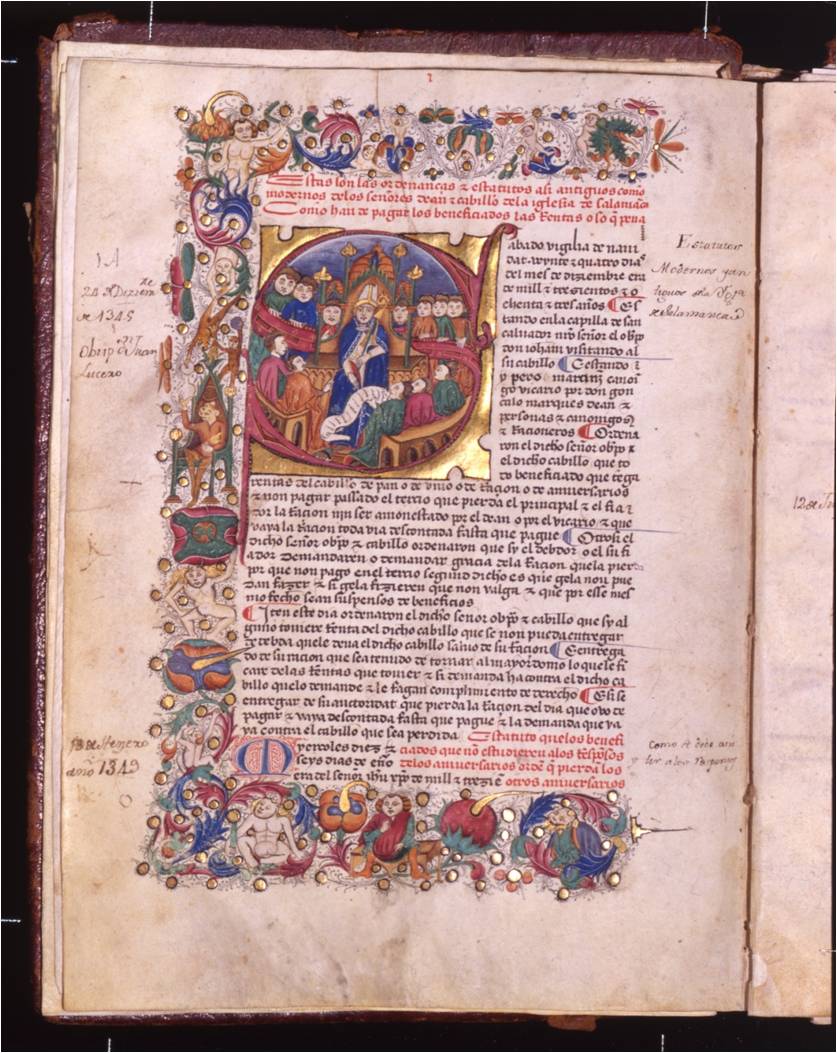 1
Estas son las ordenanças & estatutos asi antiguos como
modernos delos señores dean & cabillo dela iglesia de salamãca
Como han de pagar los beneficiados las Rentas o so q̃ pena
Sabado vigilia de naui
dat veynte & quatro dias
del mes de diziembre era
de mill & tresientos & o
chenta & tres años Es
tando enla capilla de san
saluador nr̃o señor el obp̃o
don iohan visitando al
su cabillo Estando
y pero martinz canoi
go vicario por don gon
çalo marques dean &
personas & canonigos
& Racioneros Ordena
ron el dicho señor obp̃o &
el dicho cabillo que to
do beneficiado que tẽga
rentas del cabillo de pan o de vino o de Racion o de aniuersarios
& non pagar passado el tercio que pierda el principal & el fia
dor la Racion nin ser amonestado por el dean o por el vicario & que
vaya la Racion toda via descontada fasta que pague Otrosi el
dicho señor obp̃o & cabillo ordenaron que sy el debdor o el su fi
ador Demandaren o demandar gracia dela Racion quela pier
por que non pago enel tercio segund dicho es que gela non pue
dan fazer & si gela fizieren que non valga & que por esse mes
mo fecho sean suspensos de beneficios
Iten este dia ordenaron el dicho señor obp̃o & cabillo que sy al
guno touiere Renta del dicho cabillo que se non pueda entregar
de debda quele deua el dicho cabillo saluo de su Racion E entrega
do de su racion que sea tenido de tornar al mayordomo lo que se fi
care delas Rentas que touier & si demanda ha contra el dicho ca
billo quelo demande & le fagan complimiento de derecho E si se
entregar de su auctoridat que pierda la Racion del dia que ovo de
pagar & vaya descontada fasta que pague & la demanda que ya
va contra el cabillo que sea perdida Estatuto quelos benefi
Myercoles diez & ciados que nõ estudieren alos Respõsos
seys dias de eño delos aniuersarios ordẽ q̃ pierdã los
era del señor ihũ xp̃o de mill & trezie otros aniuersarios
Estatutos
Modernos y an
tiguos de la Ygla
de Salamanca
24 de Dizieme
de 1345
Obispo Dn Juan
Lucero
de Henero
año 1349
como se debe
12 de